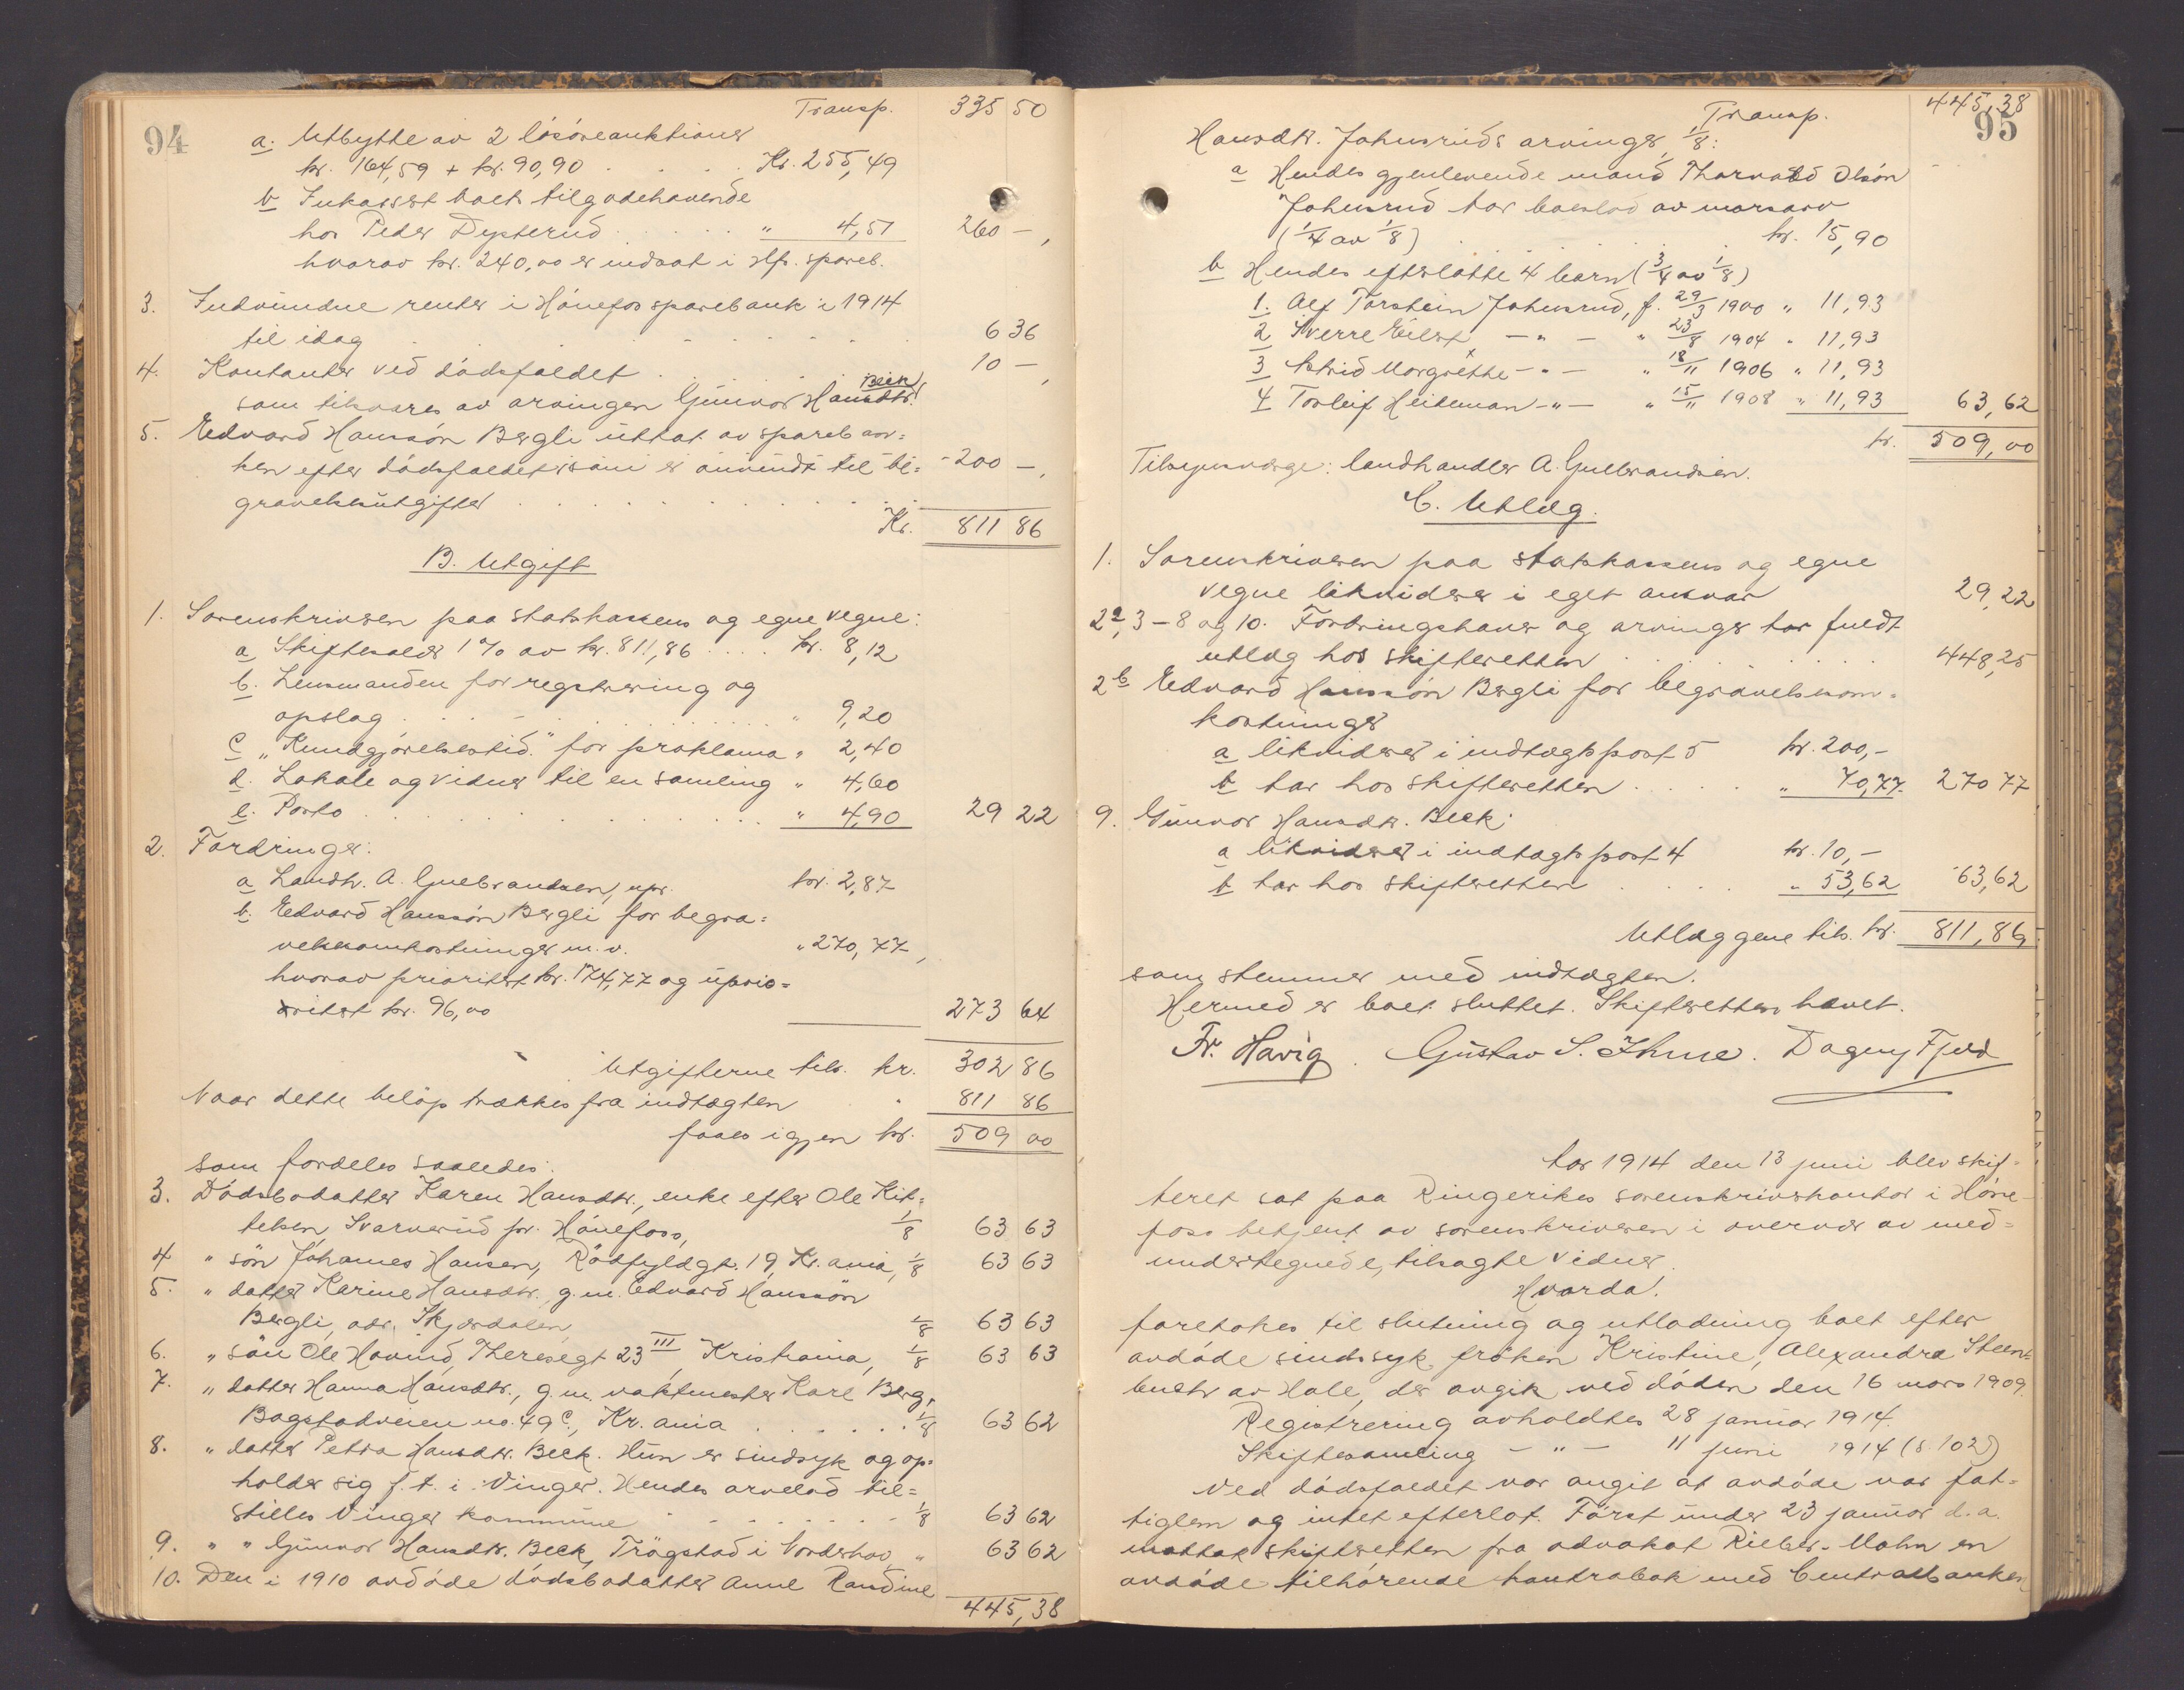 94
Transp. 335 50
a. Utbytte av 2 løsøreauktioner
kr. 164,59 + kr. 90,90 . . . . Kr. 255,49
b Inkassert boets tilgodehavende
hos Peder Dysterud . . . . . " 4,51 260 —,
hvorav kr. 240,00 er indsat i Hfs. spareb.
3. Indvundne renter i Hønefos sparebank i 1914
til idag . . . . . . . . . 6 36
4. Kontanter ved dødsfaldet . . . . . . 10 —,
som tilsvares av arvingen Gunvor Hansdtr. Beck
5. Edvard Hanssøn Bergli uttat av spareban=
ken efter dødsfaldet som er anvendt til be= 200 —,
gravelsesutgifter . . . . . . . . .
Kr. 811 86
B. Utgift
1. Sorenskriveren paa statskassens og egne vegne:
a Skiftesalær 1 % av kr. 811,86 . . . . kr. 8,12
b. Lensmanden for registrering og
opslag . . . . . . . . . . " 9,20
c „Kundgjørelsestid." for proklama " 2,40
d. Lokale og vidner til en samling " 4,60
e. Porto . . . . . . . . . . " 4,90 29 22
2. Fordringer:
a Landh. A. Gulbrandsen, upr. kr. 2,87
b. Edvard Hanssøn Bergli for begra=
velsesomkostninger m. v. " 270,77,
hvorav prioritet kr. 174,77 og uprio=
ritet kr. 96,00 273 64
Utgifterne tils. kr. 302 86
Naar dette beløp trækkes fra indtægten . " 811 86
faaes igjen kr. 509 00
som fordeles saaledes:
3. Dødsbodatter Karen Hansdtr., enke efter Ole Kit=
telsen, Svarverud pr. Hønefoss, 1/8 63 63
4 " søn Johannes Hansen, Rådfyldgt. 19, Kr.ania, 1/8 63 63
5. " datter Karine Hansdtr., g. m. Edvard Hanssøn
Bergli, adr. Skjærdalen, 1/8 63 63
6. " søn Ole Hovind, Theresegt 23 III, Kristiania, 1/8 63 63
7. " datter Hanna Hansdtr., g. m. vaktmester Karl Berg,
Bogstadveien no. 49 c., Kr.ania . . . . . . 1/8 63 62
8. " datter Petra Hansdtr. Beck. Hun er sindsyk og op=
holder sig f. t. i Vinger. Hendes arvelod til=
stilles Vinger kommune . . . . . . . 1/8 63 62
9. " " Gunvor Hansdtr. Beck, Trøgstad i Norderhov, " 63 62
10. Den i 1910 avdøde dødsbodatter Anne Randine
445,38
95
Transp. 445,38
Hansdtr. Johnsruds arvinger, 1/8:
a Hendes gjenlevende mand Thorvald Olsøn
Johnsrud tar boeslod av morsarv
(1/4 av 1/8) . . . . . . . kr. 15,90
b Hendes efterlatte 4 barn (3/4 av 1/8)
1. Alf Torstein Johnsrud, f. 29/3 1900 " 11,93
2 Sverre Eilert — " — " 23/8 1904 " 11,93
3 Astrid Margrethe — " — " 18/11 1906 " 11,93
4 Torleif Heiteman — " — " 15/11 1908 " 11,93 63,62
kr. 509,00
Tilsynsværge: landhandler A. Gulbrandsen.
C. Utlæg.
1. Sorenskriveren paa statskassens og egne
vegne likviderer i eget ansvar 29,22
2a, 3 – 8 og 10. Fordringshaver og arvinger tar fuldt
utlæg hos skifteretten . . . . . . . 448,25
2b Edvard Hanssøn Bergli for begravelsesom=
kostninger
a likviderer i indtægtspost 5 kr. 200,—
b tar hos skifteretten . . . . . " 70,77. 270 77
9. Gunvor Hansdtr. Beck:
a likviderer i indtægtspost 4 kr. 10,—
b tar hos skifteretten . . . . " 53,62 63,62
Utlæggene tils. kr. 811,86
som stemmer med indtægten.
Hermed er boet sluttet. Skifteretten hævet.
Fr. Harig. Gustav S. Ihme. Dagny Fjeld
Aar 1914 den 13 juni blev skif=
teret sat paa Ringerikes sorenskriverkontor i Høne=
foss betjent av sorenskriveren i overvær av med=
undertegnede, tilsagte vidner.
Hvorda!
foretokes til slutning og utlodning boet efter
avdøde sindssyk frøken Kristine, Alexandra Steens=
buktr av Hole, der avgik ved døden den 16 mars 1909.
Registrering avholdtes 28 januar 1914.
Skiftesamling — " — 11 juni 1914 (s. 102)
Ved dødsfaldet var angit at avdøde var fat=
tiglem og intet efterlot. Først under 23 januar d. a.
mottok skifteretten fra advokat Rieber-Mohn en
avdøde tilhørende kontrabok med Centralbanken